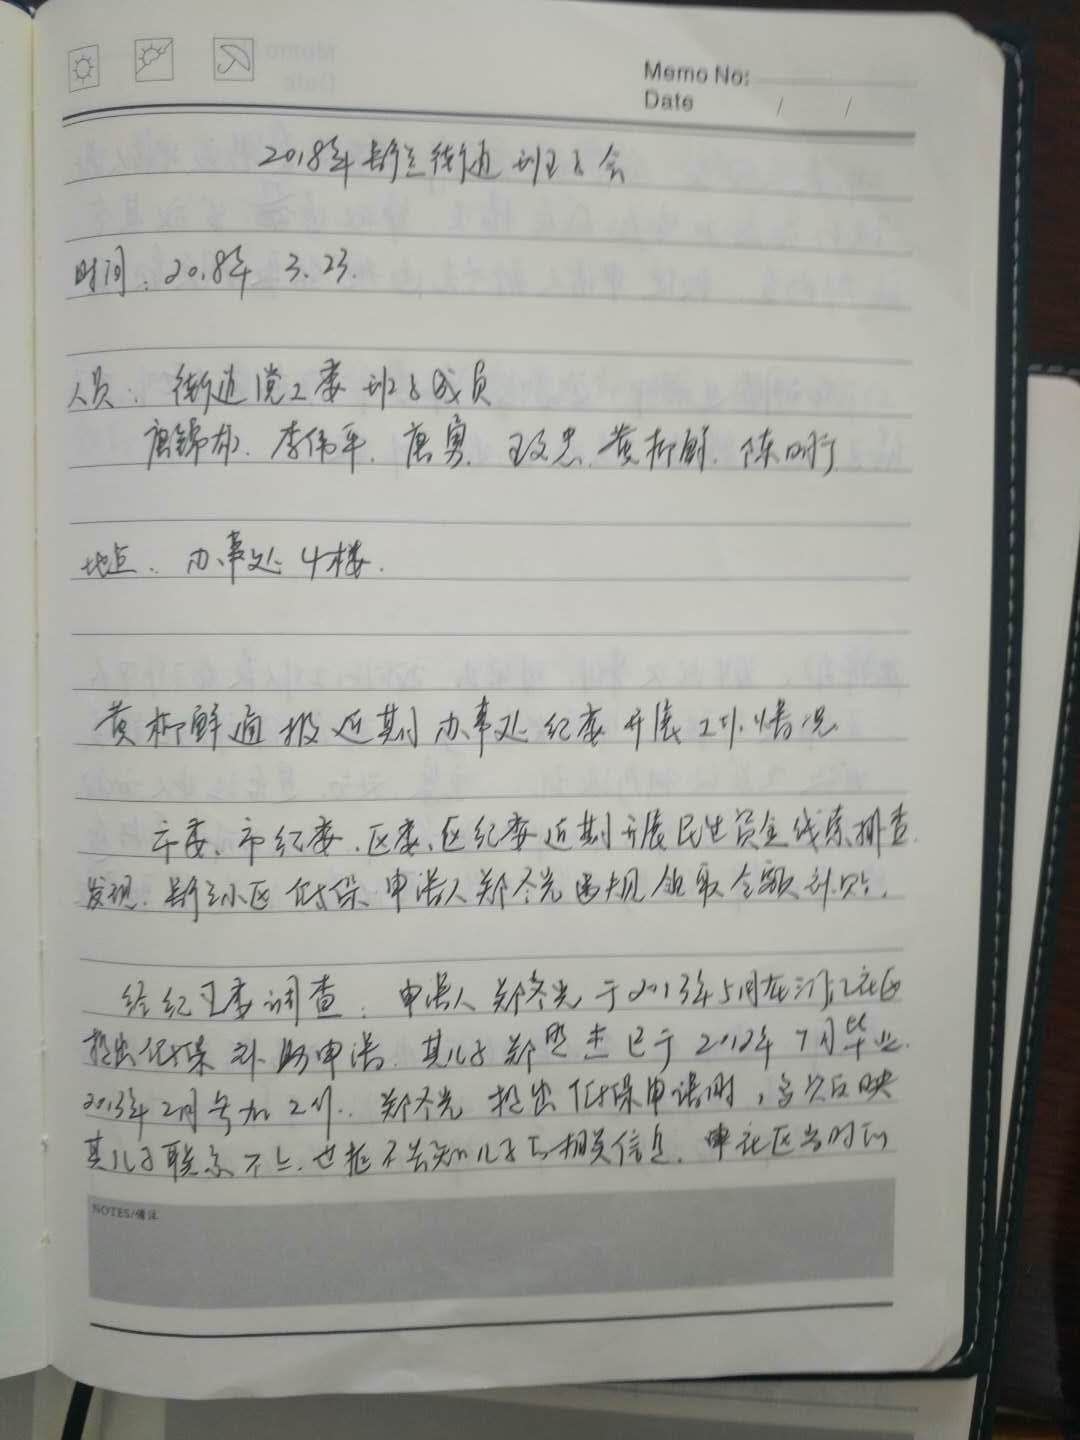 Memo No:
Date / /
2018年新兰街道班子会
时间:2018年 3.23.
人员:街道党工委班子成员
唐锦雄、李伟平、唐勇、王文忠、黄柳鲜、陈明行
地点:办事处4楼.
黄柳鲜通报近期办事处纪委开展工作情况
市委、市纪委、区委、区纪委近期开展民生资金线索排查
发现、小区低保申请人郑冬光违规领取金额补贴.
经纪工委调查:申请人郑冬光于2013年5月在江社区
提出低保补助申请.其儿子郑杰已于2012年7月毕业.
2013年2月参加工作.郑冬光提出低保申请时,多次反映
其儿子联系不上,也拒不告知儿子的相关信息.社区当时
NOTES/备注